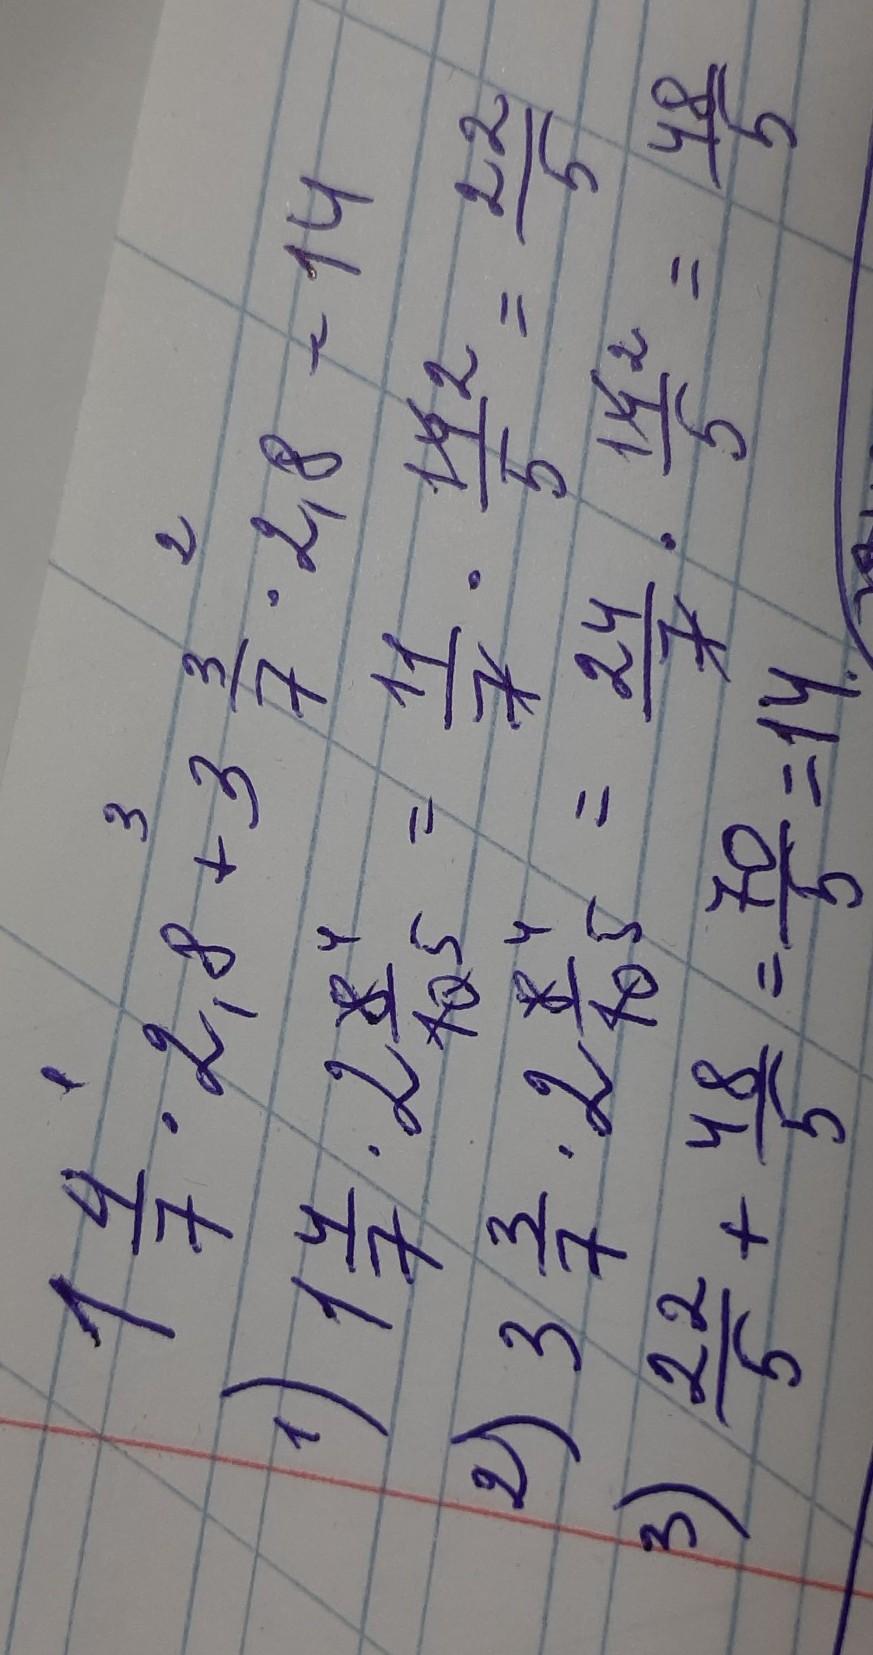 1 4/7 · 2,8 + 3 3/7 · 2,8 = 14
1) 1 4/7 · 2 8/10 = 11/7 · 14/5 = 22/5
2) 3 3/7 · 2 8/10 = 24/7 · 14/5 = 48/5
3) 22/5 + 48/5 = 70/5 = 14.